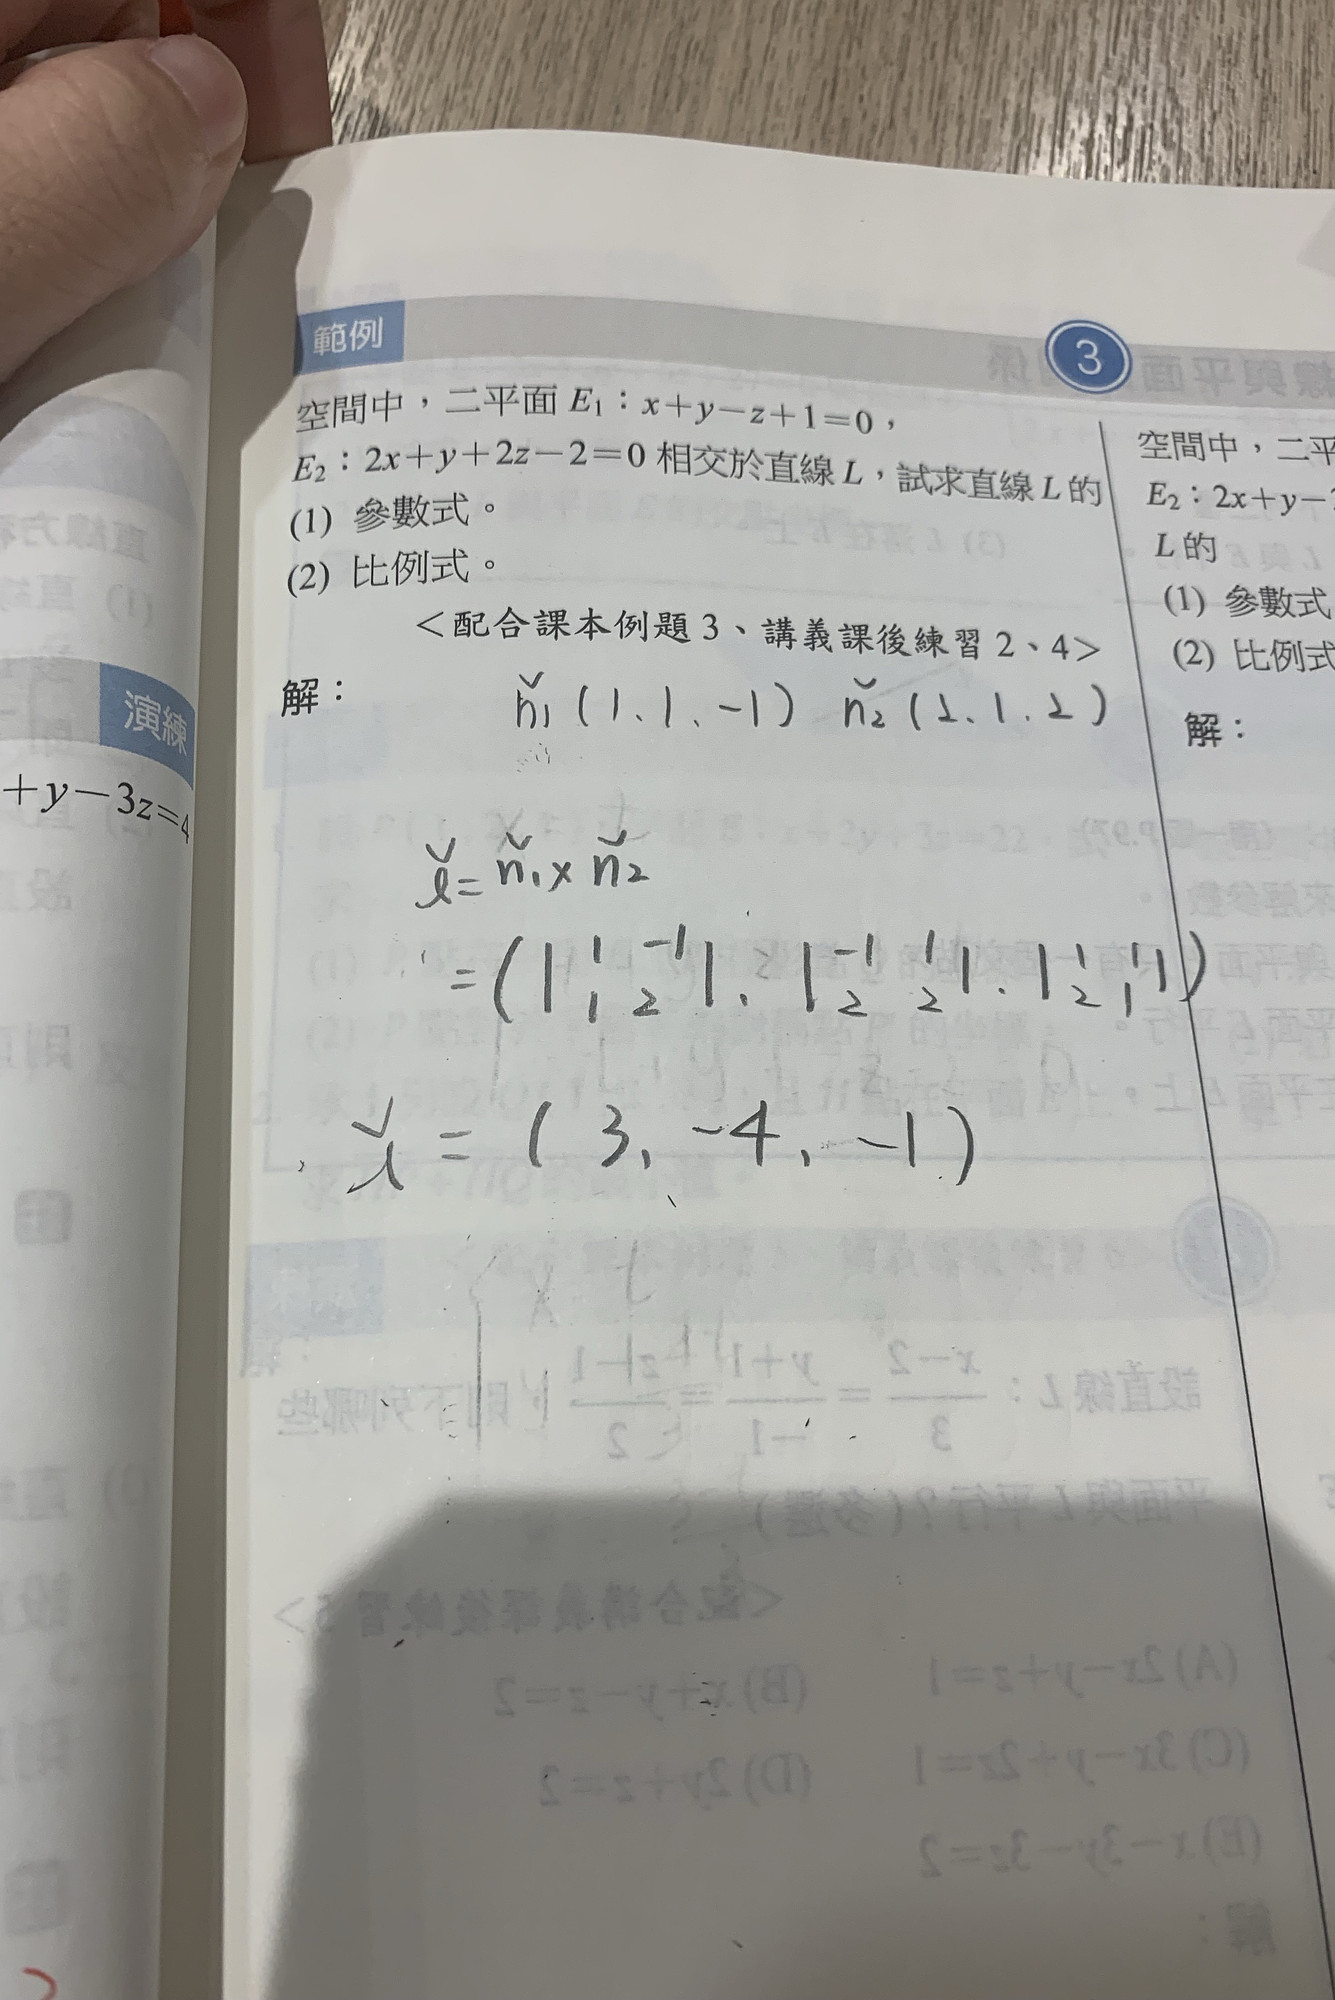 範例
3
空間中，二平面 E₁：x+y−z+1=0，
E₂：2x+y+2z−2=0 相交於直線 L，試求直線 L 的
(1) 參數式。
(2) 比例式。
＜配合課本例題 3、講義課後練習 2、4＞
解：
n₁ (1.1.-1) n₂ (2.1.2)
l = n₁ × n₂
= (|1 -1 / 1 2|. |-1 1 / 2 2|. |1 1 / 2 1|)
l = (3, -4, -1)
空間中，二平
E₂：2x+y−
L 的
(1) 參數式
(2) 比例式
解：
演練
+y−3z=4